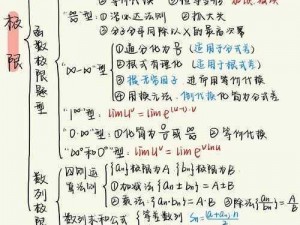 极限
函数极限题型
"∞/∞"型: ①洛必达法则 ②抓大头
③分子分母同除以X的最高次幂
"∞-∞"型 ①通分化为 0/0 (适用于分式差)
②根式有理化 (适用于根式差)
③提无穷因子 进而用等价代换
④用换元法、倒代换化简为分式差
"1^∞"型: lim u^v = lim e^{(u-1)·v}
"0·∞"型 ①化简为 0/0 或 ∞/∞ ②等价代换
"∞⁰和0⁰"型: lim u^v = lim e^{vlnu}
数列极限
四则运算法则 {an}极限为A {bn}极限为B
①加减法{an±bn}=A±B
②乘法:{an·bn}=A·B ③除法{an/bn}=A/B
数列求和公式 等差数列 Sn=(a1+an)·n/2